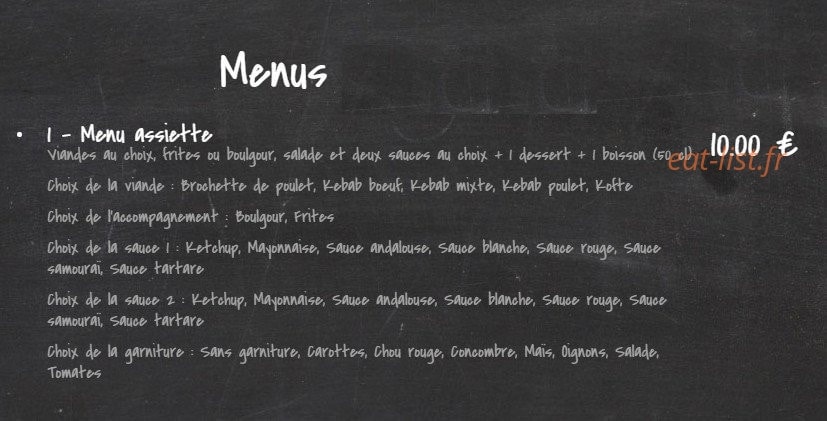 Menus
• 1 - Menu assiette 10.00 €
Viandes au choix, frites ou boulgour, salade et deux sauces au choix + 1 dessert + 1 boisson (50 cl)
eat-list.fr
Choix de la viande : Brochette de poulet, Kebab boeuf, Kebab mixte, Kebab poulet, Kofte
Choix de l'accompagnement : Boulgour, Frites
Choix de la sauce 1 : Ketchup, Mayonnaise, Sauce andalouse, Sauce blanche, Sauce rouge, Sauce
samouraï, Sauce tartare
Choix de la sauce 2 : Ketchup, Mayonnaise, Sauce andalouse, Sauce blanche, Sauce rouge, Sauce
samouraï, Sauce tartare
Choix de la garniture : Sans garniture, Carottes, Chou rouge, Concombre, Maïs, Oignons, Salade,
Tomates